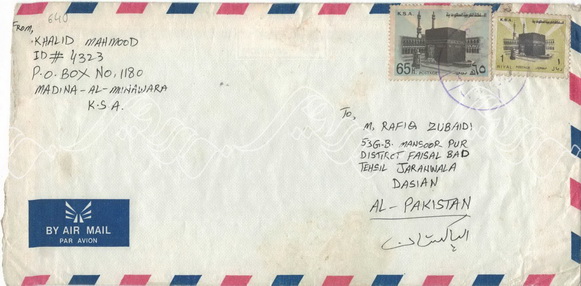 640
From,
KHALID MAHMOOD
ID # 4323
P.O. BOX No, 1180
MADINA-AL-MINAWARA
K.S.A.
K.S.A.
65
٦٥
K.S.A.
1
١
RIYAL
ريال
To,
M. RAFIQ ZUBAIDI
53 G.B. MANSOOR PUR
DISTIRCT FAISAL BAD
TEHSIL JARANWALA
DASIAN
AL-PAKISTAN
الباكستان
BY AIR MAIL
PAR AVION